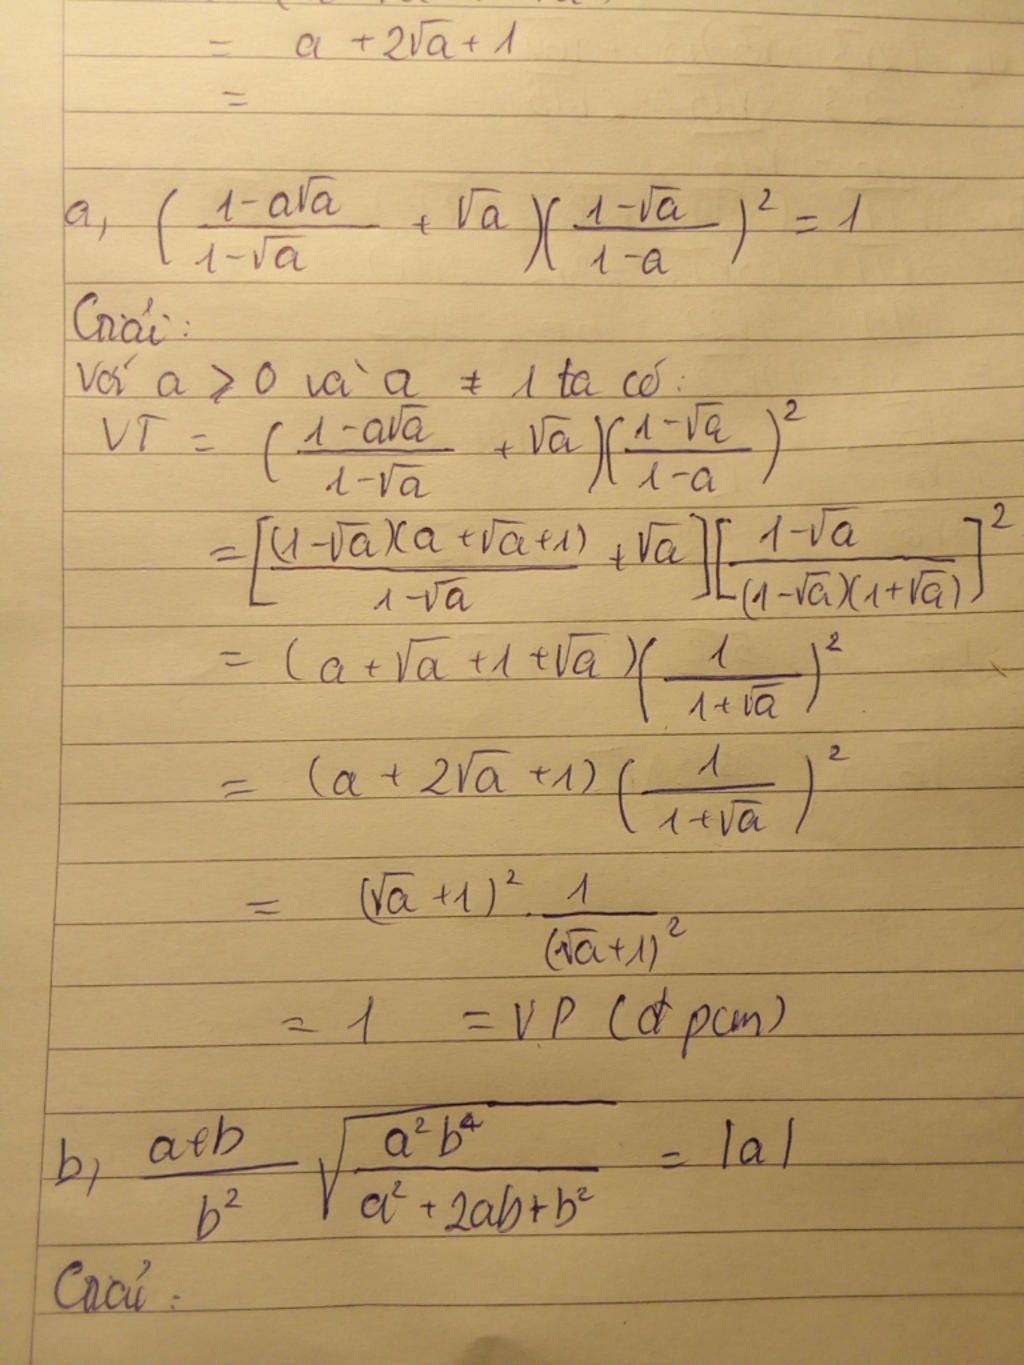 = a + 2√a + 1
=
a, ( (1-a√a)/(1-√a) + √a )( (1-√a)/(1-a) )² = 1
Giải:
Với a ≥ 0 và a ≠ 1 ta có:
VT = ( (1-a√a)/(1-√a) + √a )( (1-√a)/(1-a) )²
= [ (1-√a)(a+√a+1)/(1-√a) + √a ][ (1-√a)/((1-√a)(1+√a)) ]²
= (a+√a+1+√a)( 1/(1+√a) )²
= (a + 2√a + 1)( 1/(1+√a) )²
= (√a+1)² . 1/(√a+1)²
= 1 = VP (đpcm)
b, (a+b)/b² √(a²b⁴/(a²+2ab+b²)) = |a|
Giải: